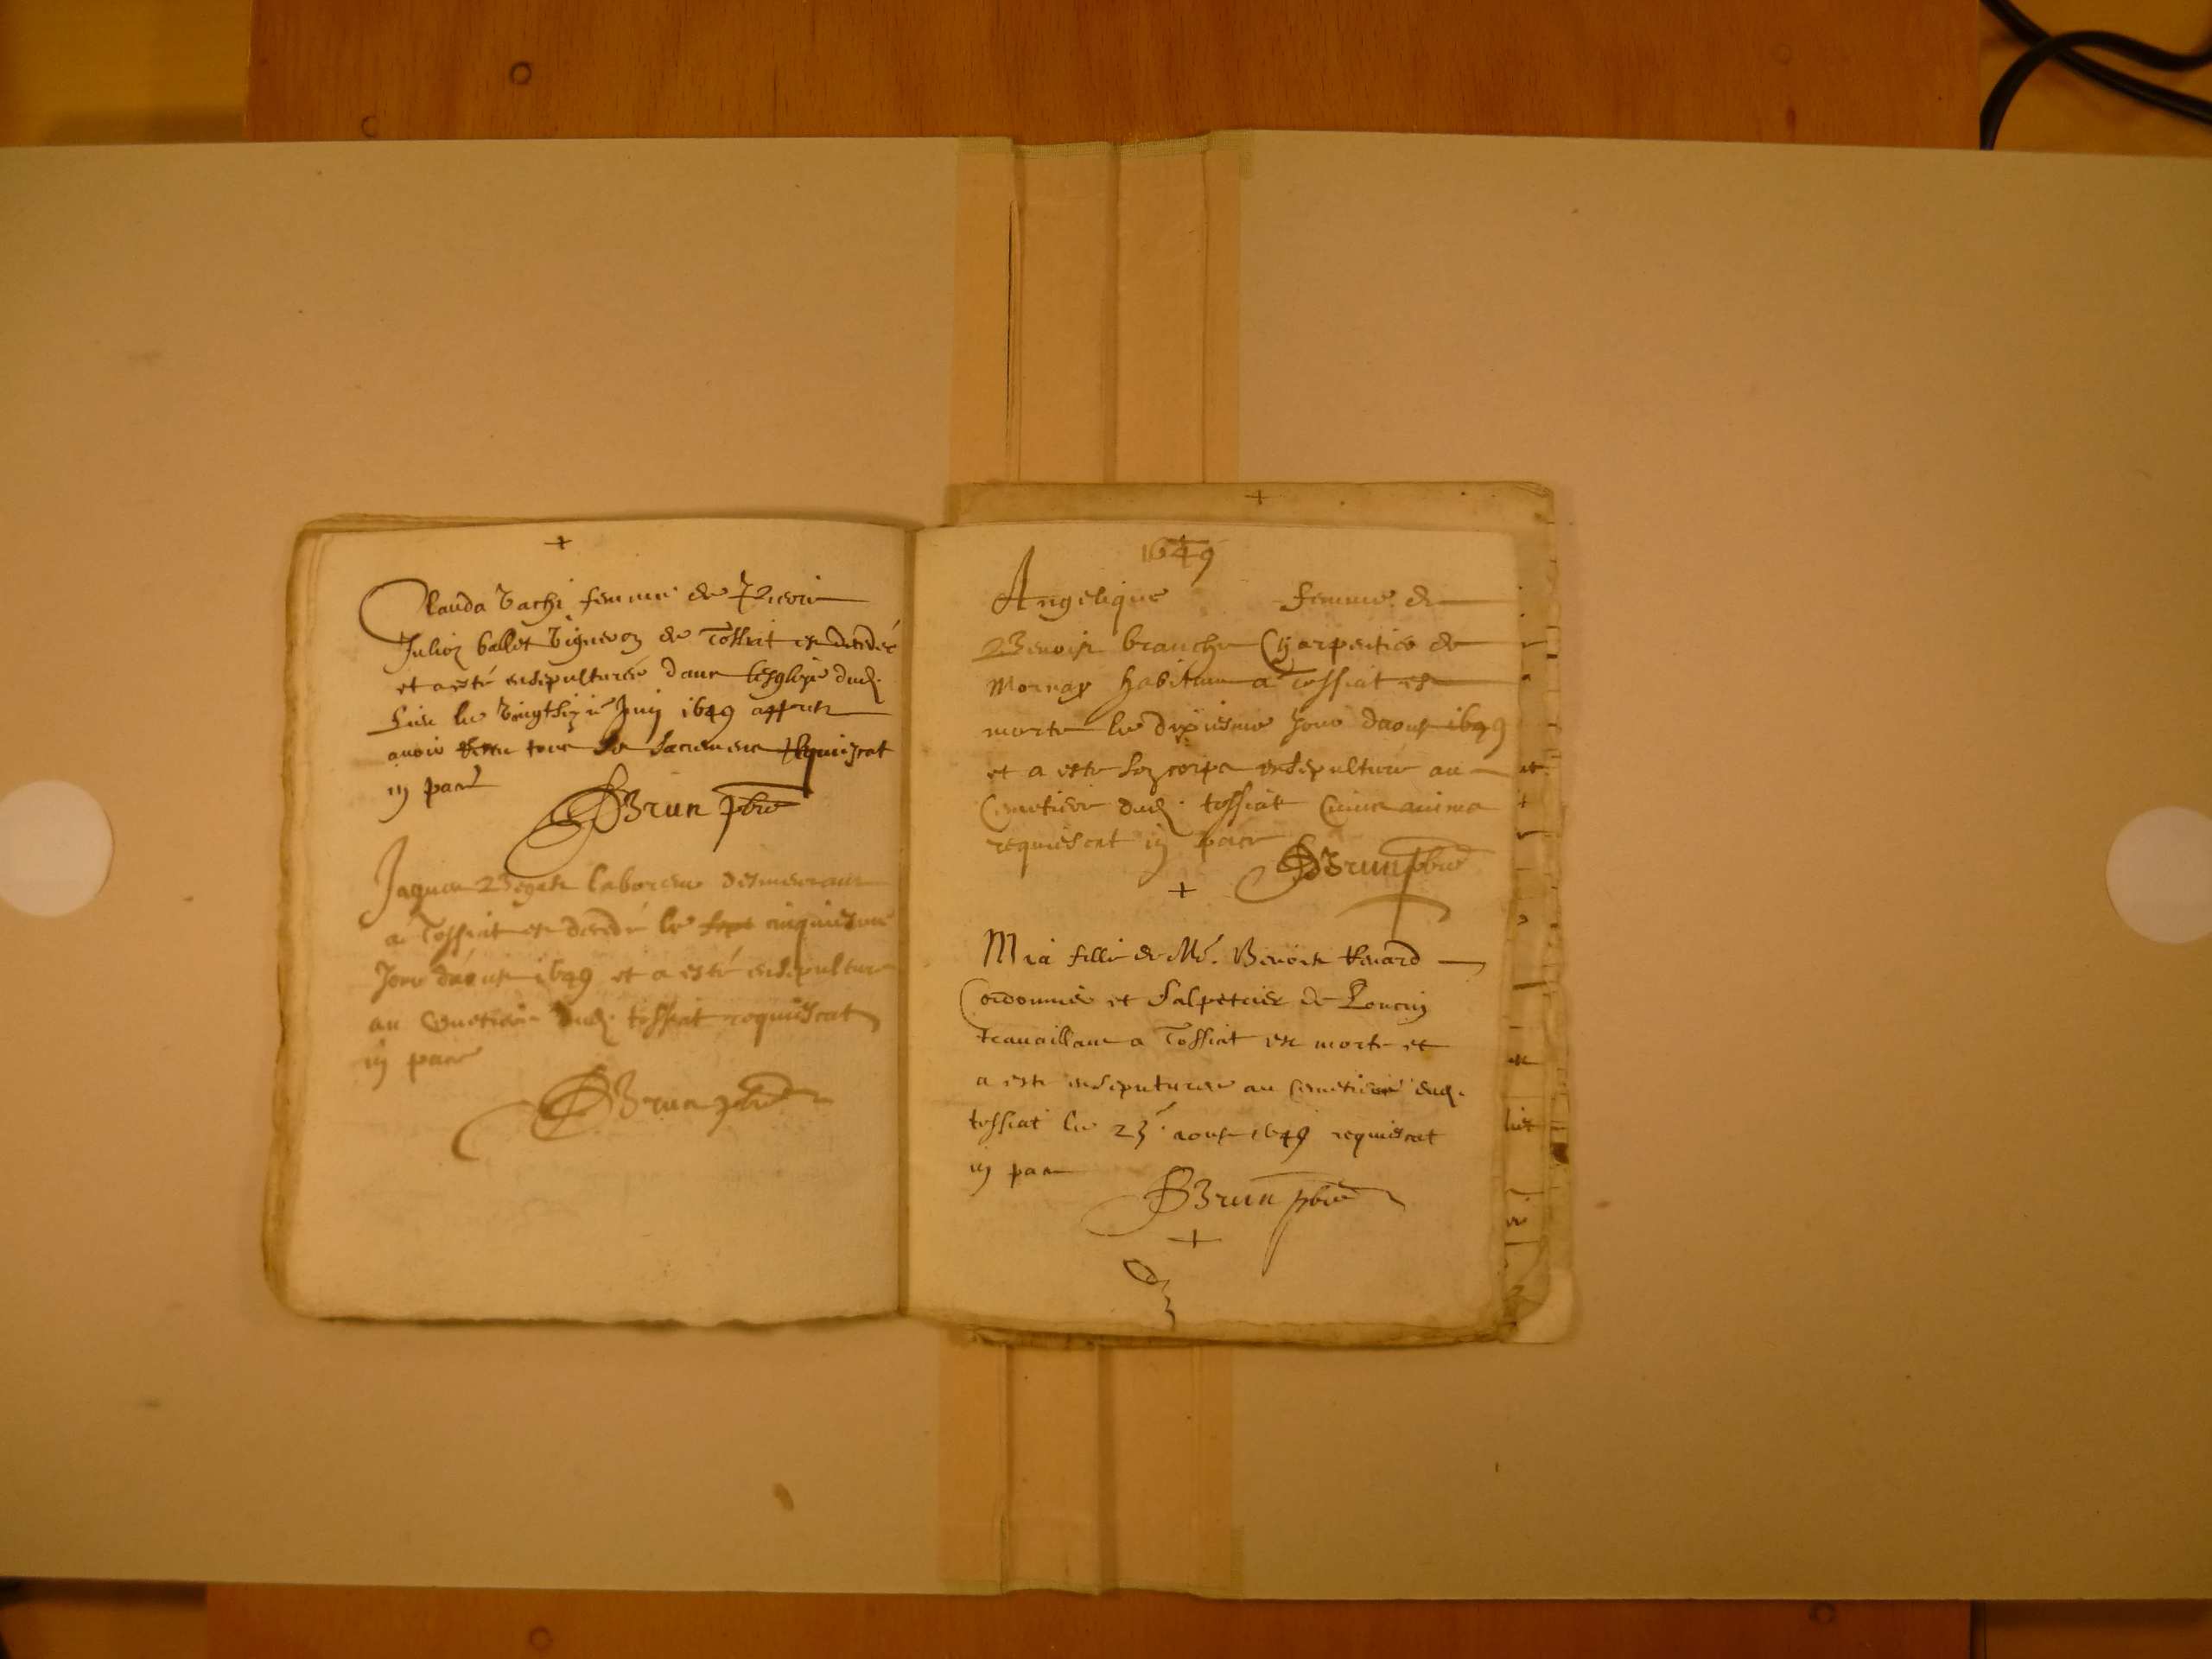 +
Clauda Vachi femme de
Julien ballet Vigneron de Tossiat est decedée
et a esté ensepulturée dans lesglize dud.
Lieu le Vingtsizie Juin 1649 appres
avoir tous les sacremens Requiescat
in pace
Brun pbre
Jaques laboreur demeurant
a Tossiat est decedé le cinquiesme
Jour daoust 1649 et a esté ensepulture
au Cemetiere dud. tossiat requiescat
in pace
Brun pbre
1649
Angelique femme de
Benoist branche Charpentier de
Mornay habitant a Tossiat est
morte le dixiesme Jour daoust 1649
et a este son corps ensepulturé au
Cemetiere dud. tossiat Cuius anima
requiescat in pace
Brun pbre
+
Mia fille de Me. Benoist Renard
Cordonnier et Salpetrier de
travaillant a Tossiat est morte et
a este au Cemetiere dud.
tossiat le 23 aoust 1649 requiescat
in pace
Brun pbre
+